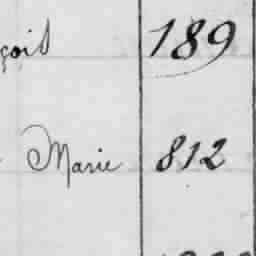 çois 189
Marie 812